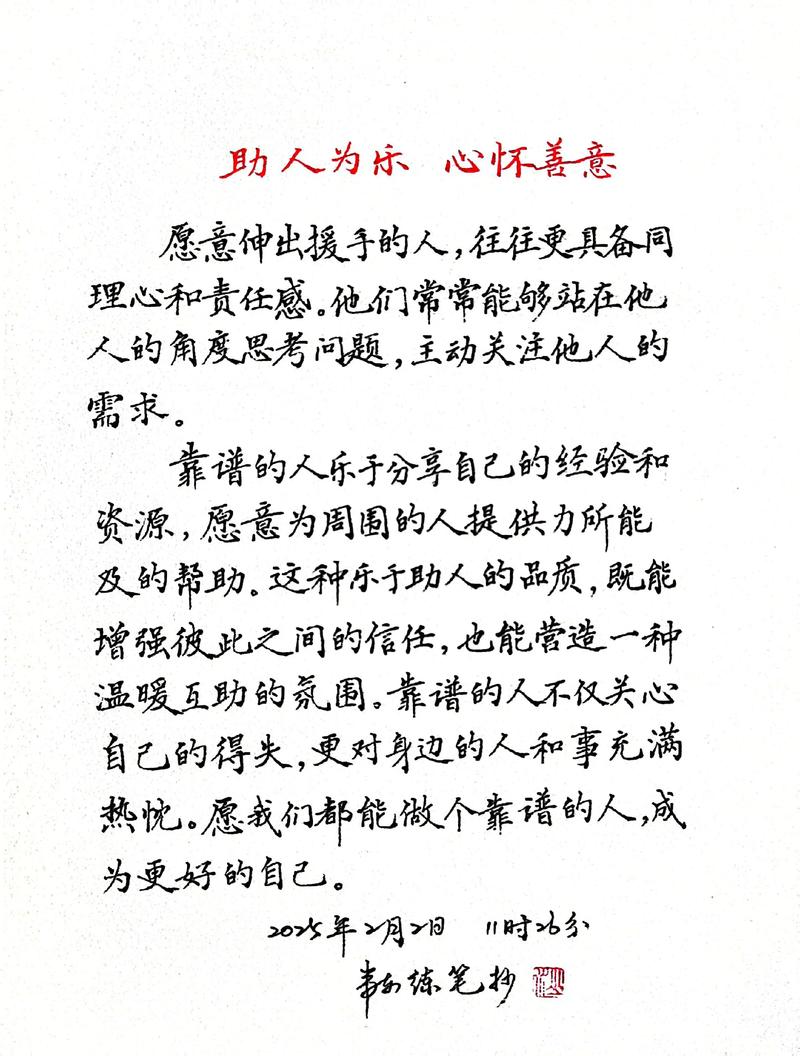 助人为乐 心怀善意
愿意伸出援手的人，往往更具备同
理心和责任感。他们常常能够站在他
人的角度思考问题，主动关注他人的
需求。
靠谱的人乐于分享自己的经验和
资源，愿意为周围的人提供力所能
及的帮助。这种乐于助人的品质，既能
增强彼此之间的信任，也能营造一种
温暖互助的氛围。靠谱的人不仅关心
自己的得失，更对身边的人和事充满
热忱。愿我们都能做个靠谱的人，成
为更好的自己。
2025年2月2日 11时26分
练笔抄